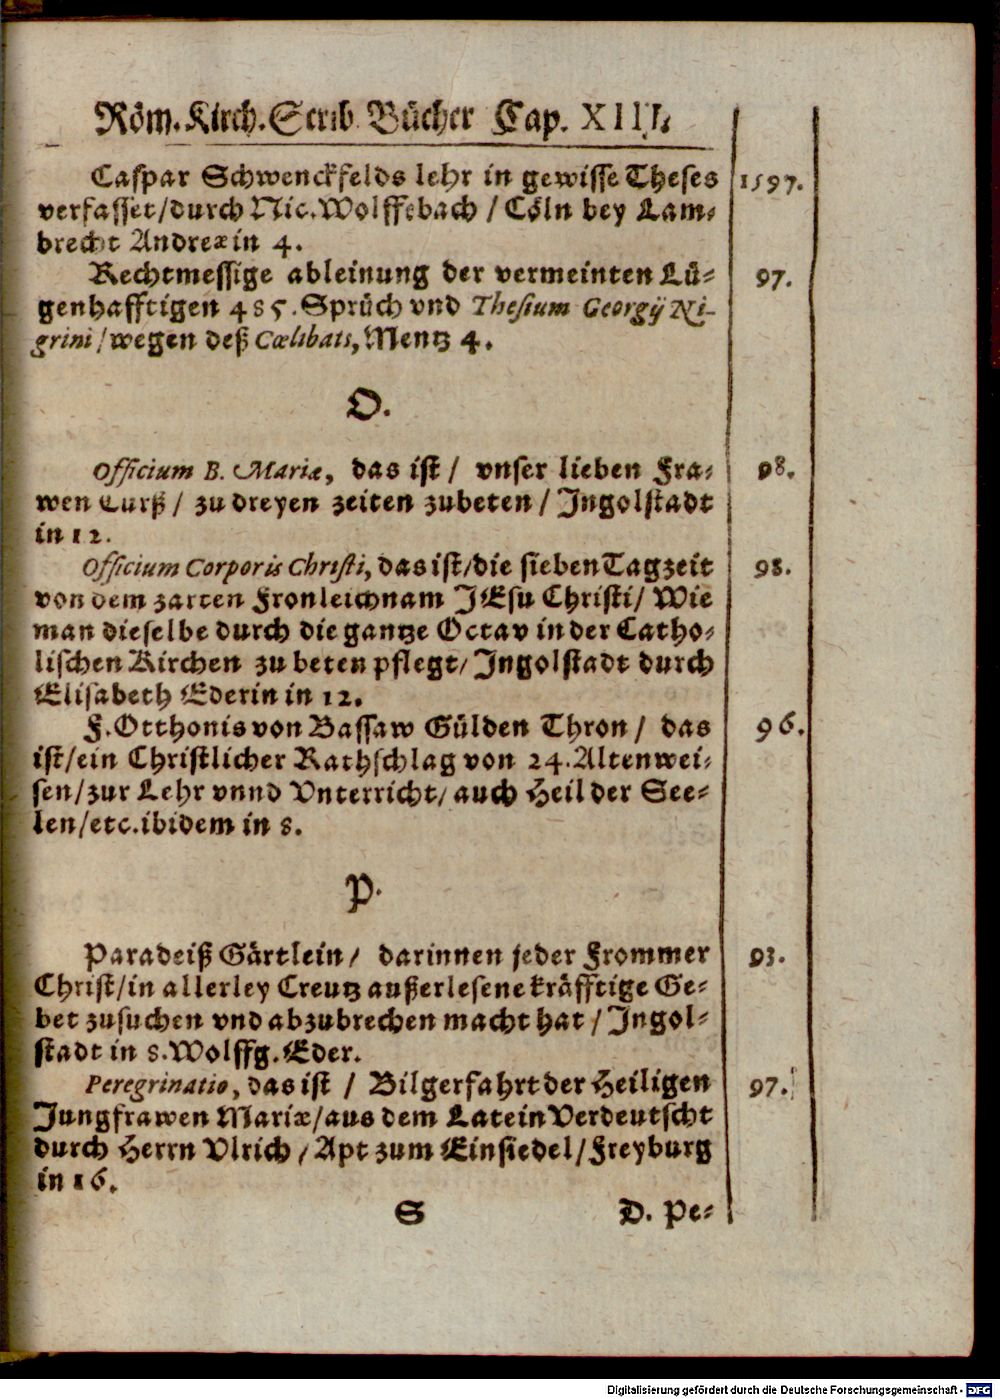 Röm. Kirch. Scrib. Bücher Cap. XIII.
Caspar Schwenckfelds lehr in gewisse Theses 1597.
verfasset/durch Nic. Wolffebach / Cöln bey Lam-
brecht Andreæ in 4.
Rechtmessige ableinung der vermeinten Lü- 97.
genhafftigen 485. Sprüch vnd Thesium Georgij Ni-
grini/wegen deß Cœlibats, Mentz 4.
O.
Officium B. Mariæ, das ist / vnser lieben Fra- 98.
wen Curß / zu dreyen zeiten zubeten / Ingolstadt
in 12.
Officium Corporis Christi, das ist/die sieben Tagzeit 98.
von dem zarten Fronleichnam JEsu Christi/ Wie
man dieselbe durch die gantze Octav in der Catho-
lischen Kirchen zu beten pflegt/ Ingolstadt durch
Elisabeth Ederin in 12.
F. Otthonis von Bassaw Gülden Thron / das 96.
ist/ein Christlicher Rathschlag von 24. Alten wei-
sen/zur Lehr vnnd Vnterricht/ auch Heil der See-
len/etc. ibidem in 8.
P.
Paradeiß Gärtlein / darinnen jeder Frommer 93.
Christ/in allerley Creutz außerlesene kräfftige Ge-
bet zusuchen vnd abzubrechen macht hat / Ingol-
stadt in 8. Wolffg. Eder.
Peregrinatio, das ist / Bilgerfahrt der Heiligen 97.
Jungfrawen Mariæ/aus dem Latein Verdeutscht
durch Herrn Vlrich / Apt zum Einsiedel/ Freyburg
in 16.
S D. Pe-
Digitalisierung gefördert durch die Deutsche Forschungsgemeinschaft - DFG